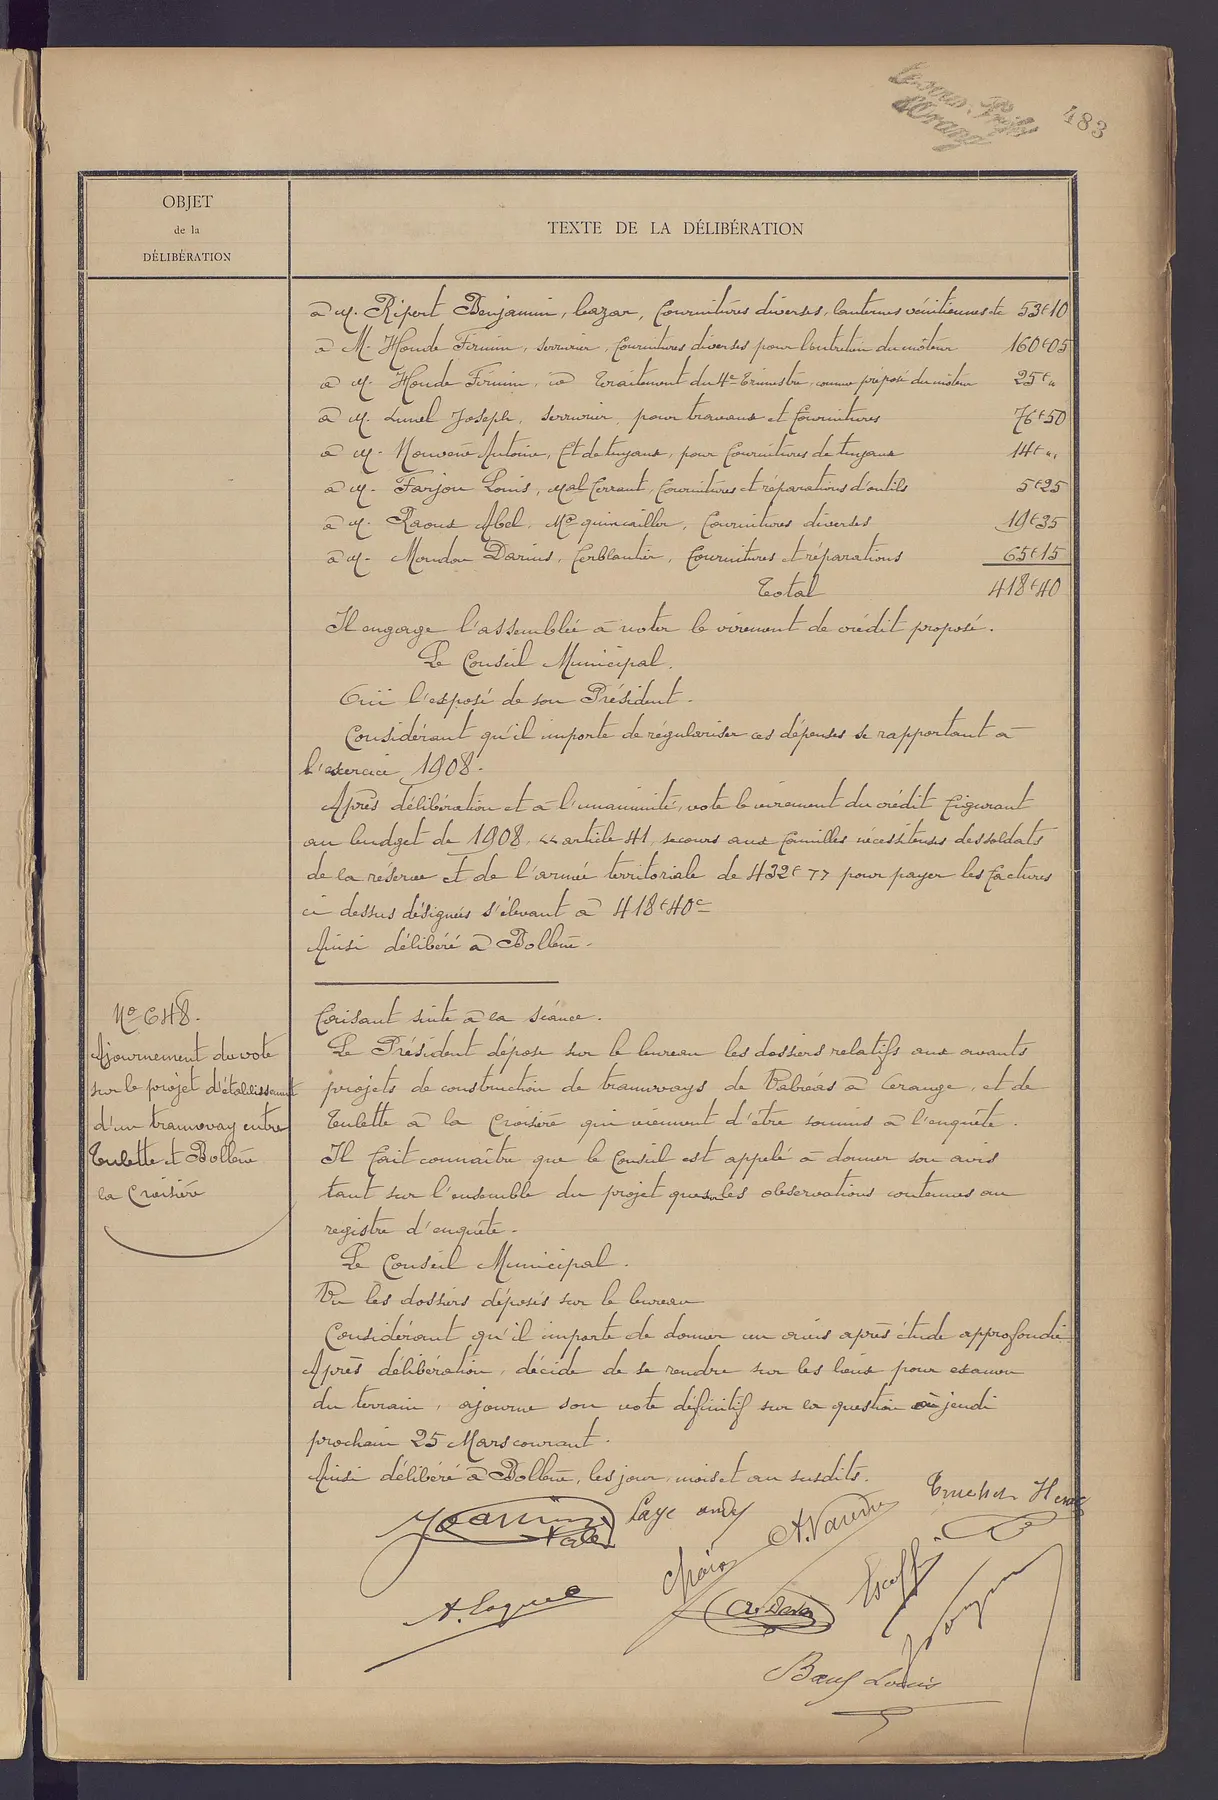 Le Sous-Préfet
d'Orange
483
OBJET
de la
DÉLIBÉRATION
TEXTE DE LA DÉLIBÉRATION
à M. Ripert Benjamin, bazar, fournitures diverses, lanternes vénitiennes etc 53f10
à M. Houde Firmin, serrurier, fournitures diverses pour l'entretien du moteur 160f05
à M. Houde Firmin, traitement du 4e trimestre, comme préposé du moteur 25f"
à M. Lunel Joseph, serrurier, pour travaux et fournitures 76f50
à M. Antoine, Ft de tuyaux, pour fournitures de tuyaux 14f"
à M. Farjon Louis, Mal ferrant, fournitures et réparations d'outils 5f25
à M. Raoux Abel, Md quincailler, fournitures diverses 19f35
à M. Moudon Darius, ferblantier, fournitures et réparations 65f15
Total 418f40
Il engage l'assemblée à voter le virement de crédit proposé.
Le Conseil Municipal.
Ouï l'exposé de son Président.
Considérant qu'il importe de régulariser ces dépenses se rapportant à
l'exercice 1908.
Après délibération et à l'unanimité, vote le virement du crédit figurant
au budget de 1908, article 41, secours aux familles nécessiteuses des soldats
de la réserve et de l'armée territoriale de 432f77 pour payer les factures
ci dessus désignées s'élevant à 418f40c
Ainsi délibéré à Bollène.
No 648.
Ajournement du vote
sur le projet d'établissement
d'un tramway entre
Tulette et Bollène
la Croisière
Faisant suite à la séance.
Le Président dépose sur le bureau les dossiers relatifs aux avants
projets de construction de tramways de Valréas à Orange, et de
Tulette à la Croisière qui viennent d'être soumis à l'enquête.
Il fait connaître que le Conseil est appelé à donner son avis
tant sur l'ensemble du projet que sur les observations contenues au
registre d'enquête.
Le Conseil Municipal.
Vu les dossiers déposés sur le bureau
Considérant qu'il importe de donner un avis après étude approfondie
Après délibération, décide de se rendre sur les lieux pour examen
du terrain, ajourne son vote définitif sur la question à jeudi
prochain 25 Mars courant.
Ainsi délibéré à Bollène, les jour, mois et an susdits.
Baux Louis